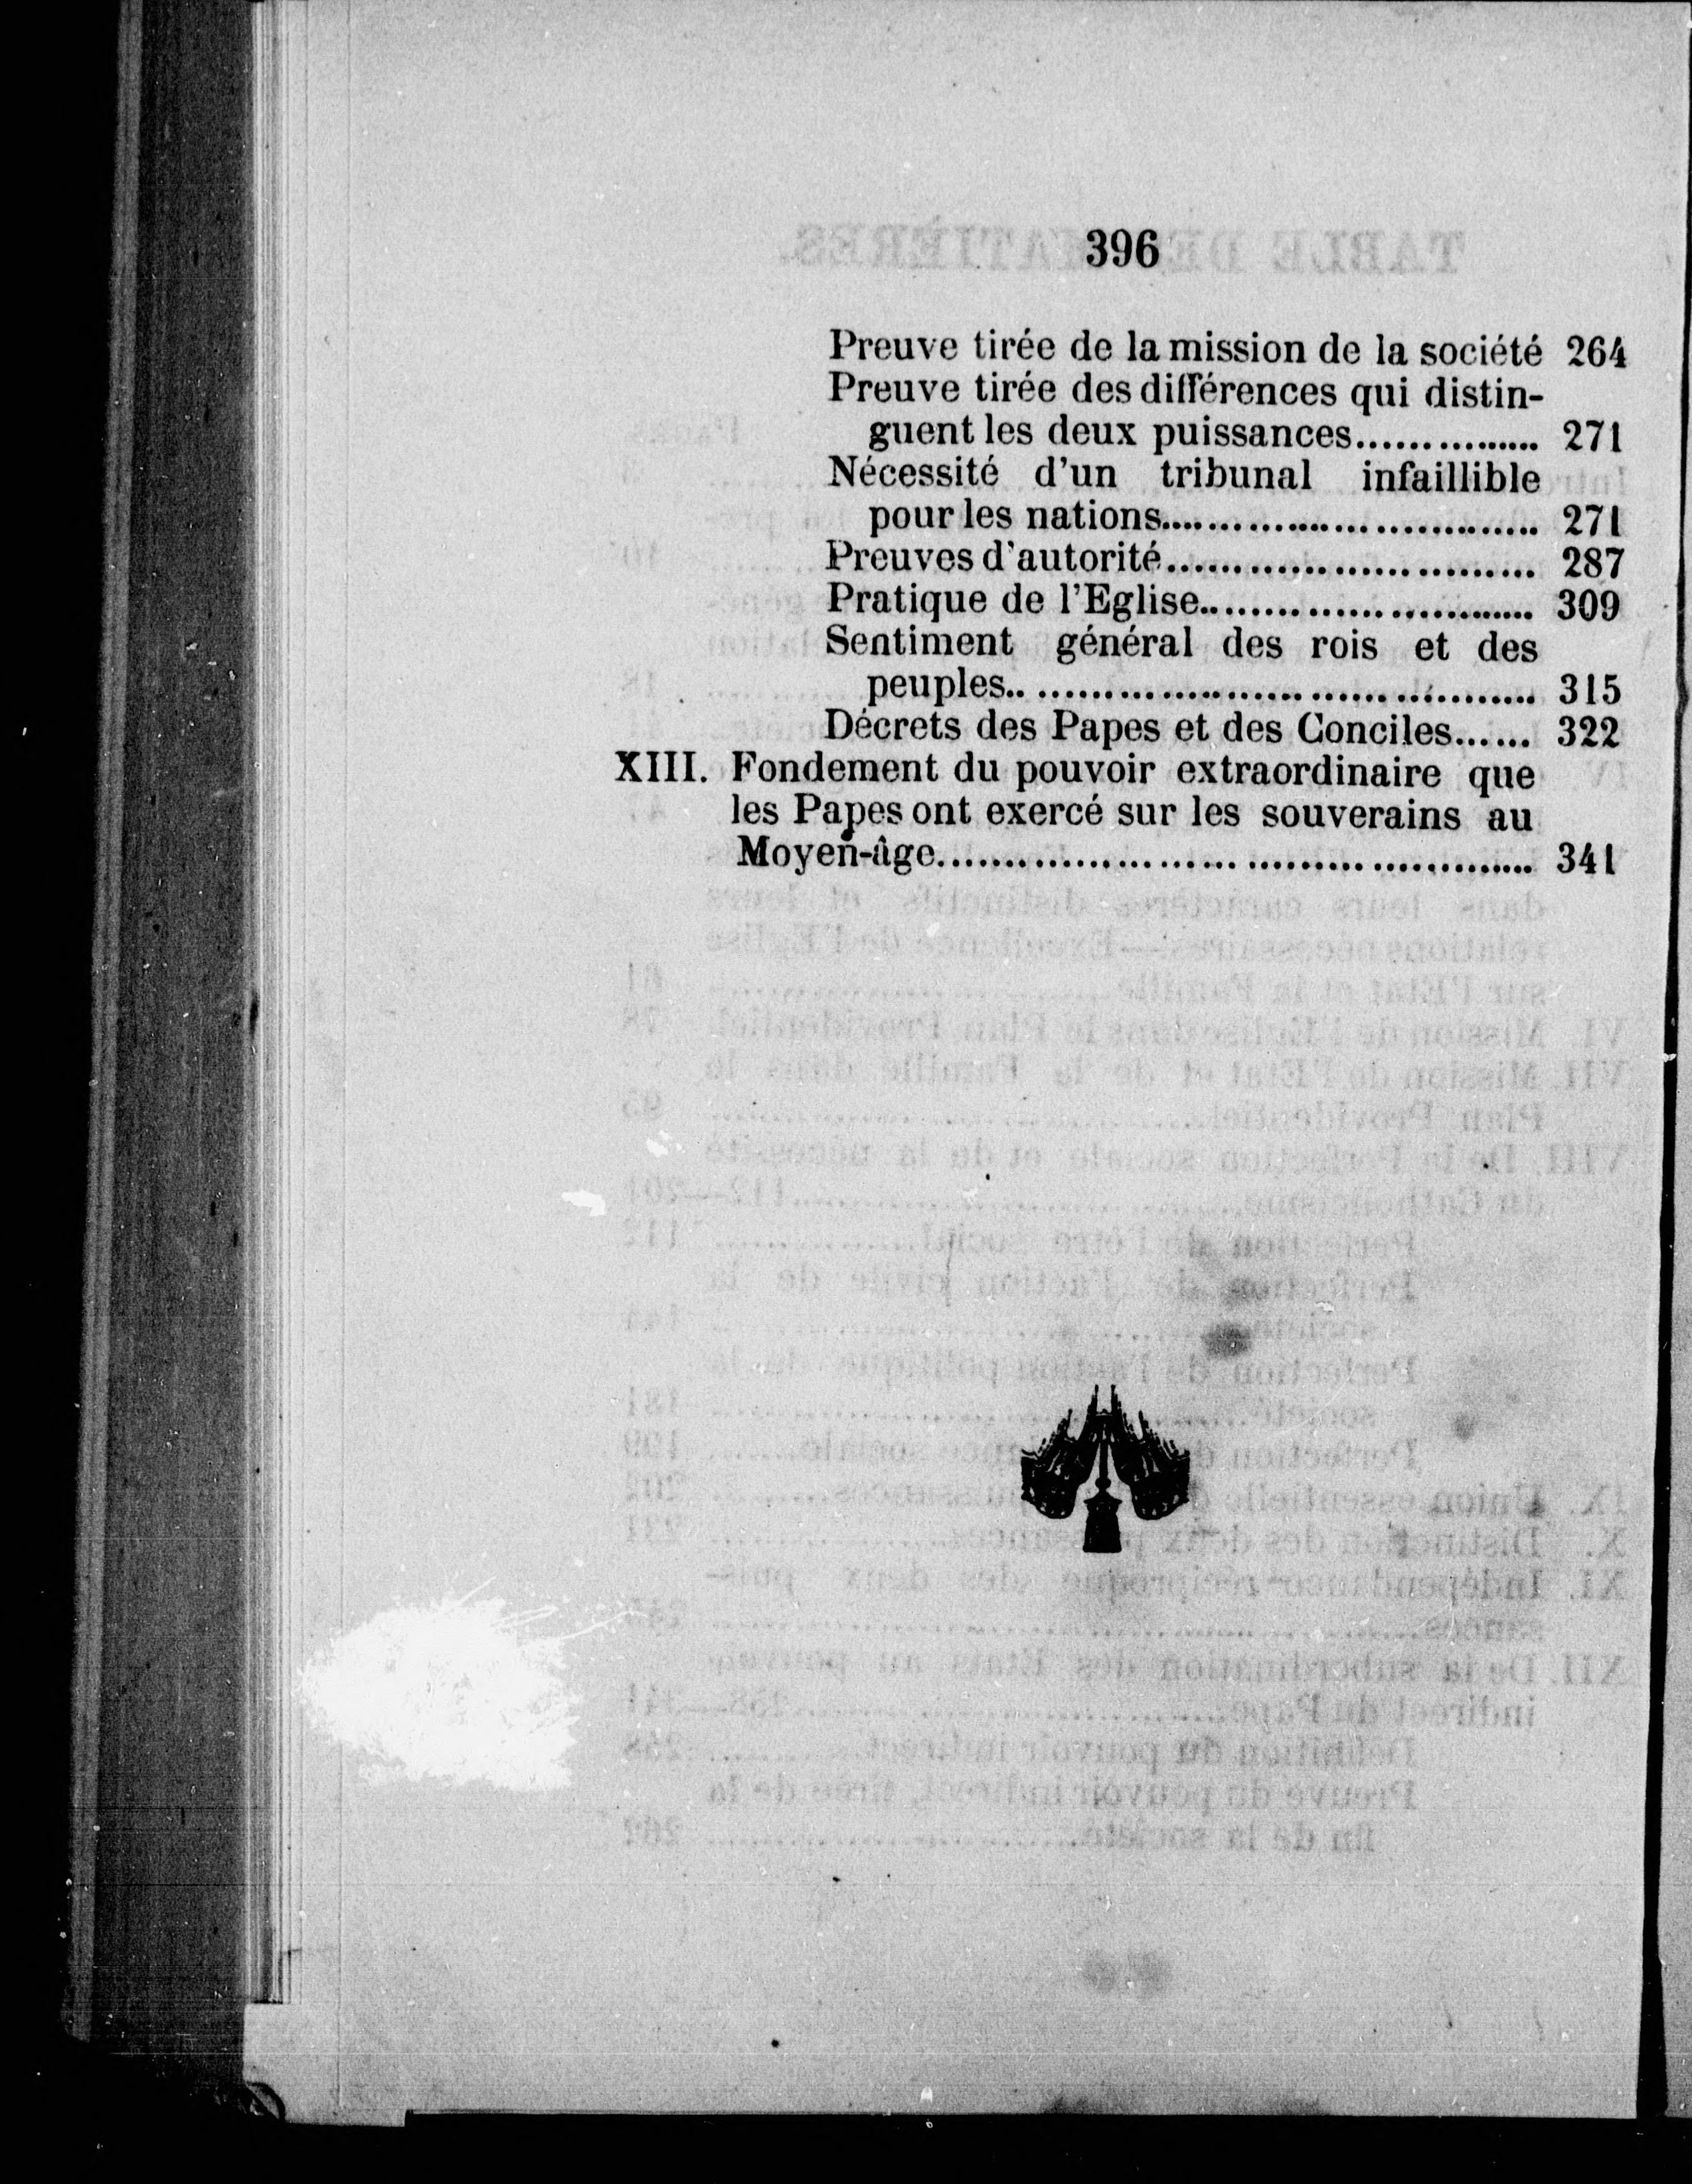 396
Preuve tirée de la mission de la société 264
Preuve tirée des différences qui distin-
guent les deux puissances............... 271
Nécessité d'un tribunal infaillible
pour les nations................................ 271
Preuves d'autorité............................... 287
Pratique de l'Eglise............................ 309
Sentiment général des rois et des
peuples.......................................... 315
Décrets des Papes et des Conciles...... 322
XIII. Fondement du pouvoir extraordinaire que
les Papes ont exercé sur les souverains au
Moyen-âge................................................ 341